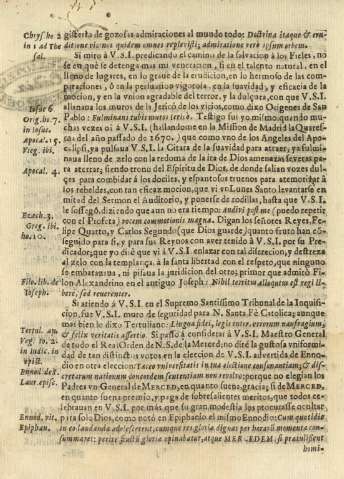 Chrys. ho 2
in 1 ad The
sal.
Iosue 6.
Orig. ho. 7.
in Iosue.
Apocal. 15.
Vieg. ibi.
Apoca. 4.
Ezech. 3.
Greg. ibi.
ho. 10.
Filo. lib. de
Ioseph.
Tertul. am
Vvg. lib. 2.
in indic. in
epist.
Ennod. de S
Laur. episc.
Ennod. vit.
Epiphan.
gisteria de gozosas admiraciones al mundo todo: Doctrina itaque & eru-
ditione vicinos quidem omnes replevisti; admiratione vero ipsum orbem.
Si miro à V.S.I. predicando el camino de la salvacion à los Fieles, no
se en que pulpito tenga mi veneracion, si en el talento natural, en el
lleno de lugares, en lo grave de la erudicion, en lo hermoso de las com-
paraciones, ò en la persuasion vigorosa, en la suavidad, y eficacia de la
mocion, y en la vnion agradable del terror, y la dulçura, con que V.S.I.
allanava los muros de la Jericò de los vicios, como dixo Origenes de San
Pablo: Fulminans tubis muros Iericò. Testigo fui yo mismo, quando mu-
chas vezes oì à V.S.I. (hallandome en la Mission de Madrid la Quares-
ma del año passado de 1670.) que como vno de los Angeles del Apoca-
lipsi, ya pulsava V.S.I. la Citara de la suavidad para atraer, ya fulmi-
nava lleno de zelo con la redoma de la ira de Dios amenazas severas pa-
ra aterrar; siendo trono del Espiritu de Dios, de donde salian vozes dul-
ces para combidar à los dociles, y espantosos truenos para atemorizar à
los rebeldes, con tan eficaz mocion, que vì vn Lunes Santo levantarse en
mitad del Sermon el Auditorio, y ponerse de rodillas, hasta que V.S.I.
le sossegò, diziendo que aun no era tiempo: Audivi post me (puedo repetir
con el Profeta) vocem commotionis magna. Digan los señores Reyes, Fe-
lipe Quarto, y Carlos Segundo (que Dios guarde) quanto fruto han con-
seguido para si, y para sus Reynos con aver tenido à V.S.I. por su Pre-
dicador; que yo diré que vì à V.S.I. enlazar con tal discrecion, y destreza
al zelo con la templança, à la santa libertad con el respeto, que ninguno
se embaraçava, ni pisava la jurisdicion del otro; primor que admirò Fi-
lon Alexandrino en el antiguo Joseph: Nihil territus alloquutus est regi li-
berè, sed reverenter.
Si atiendo à V.S.I. en el Supremo Santissimo Tribunal de la Inquisi-
cion, fue V.S.I. muro de seguridad para N. Santa Fè Catolica; aunque
mas bien lo dixo Tertuliano: Lingua fidei, legis inter, errorum naufragium,
& felix veritatis assertio. Si passò à considerar à V.S.I. Maestro General
de todo el Real Orden de N.S. de la Merced; no dirè la gustosa vniformidad
de tan distintos votos en la eleccion de V.S.I. advertida de Enno-
dio en otra eleccion: porque no elegian los
Padres vn General de MERCED, en quanto suene gracia; si de MERCED,
en quanto suena premio, y paga de sobresalientes meritos, que todos ce-
lebravan en V.S.I. por mas que su gran modestia los procurasse ocultar
para solo Dios, como notò en Epiphanio el mismo Ennodio: Cum quotidie
in eo laudanda adolescerent, cumque res gloria dignas per horarum momenta con-
summaret: petite fructu gloria opinabatur, atque MERCEDEM, si protulisset
homi-